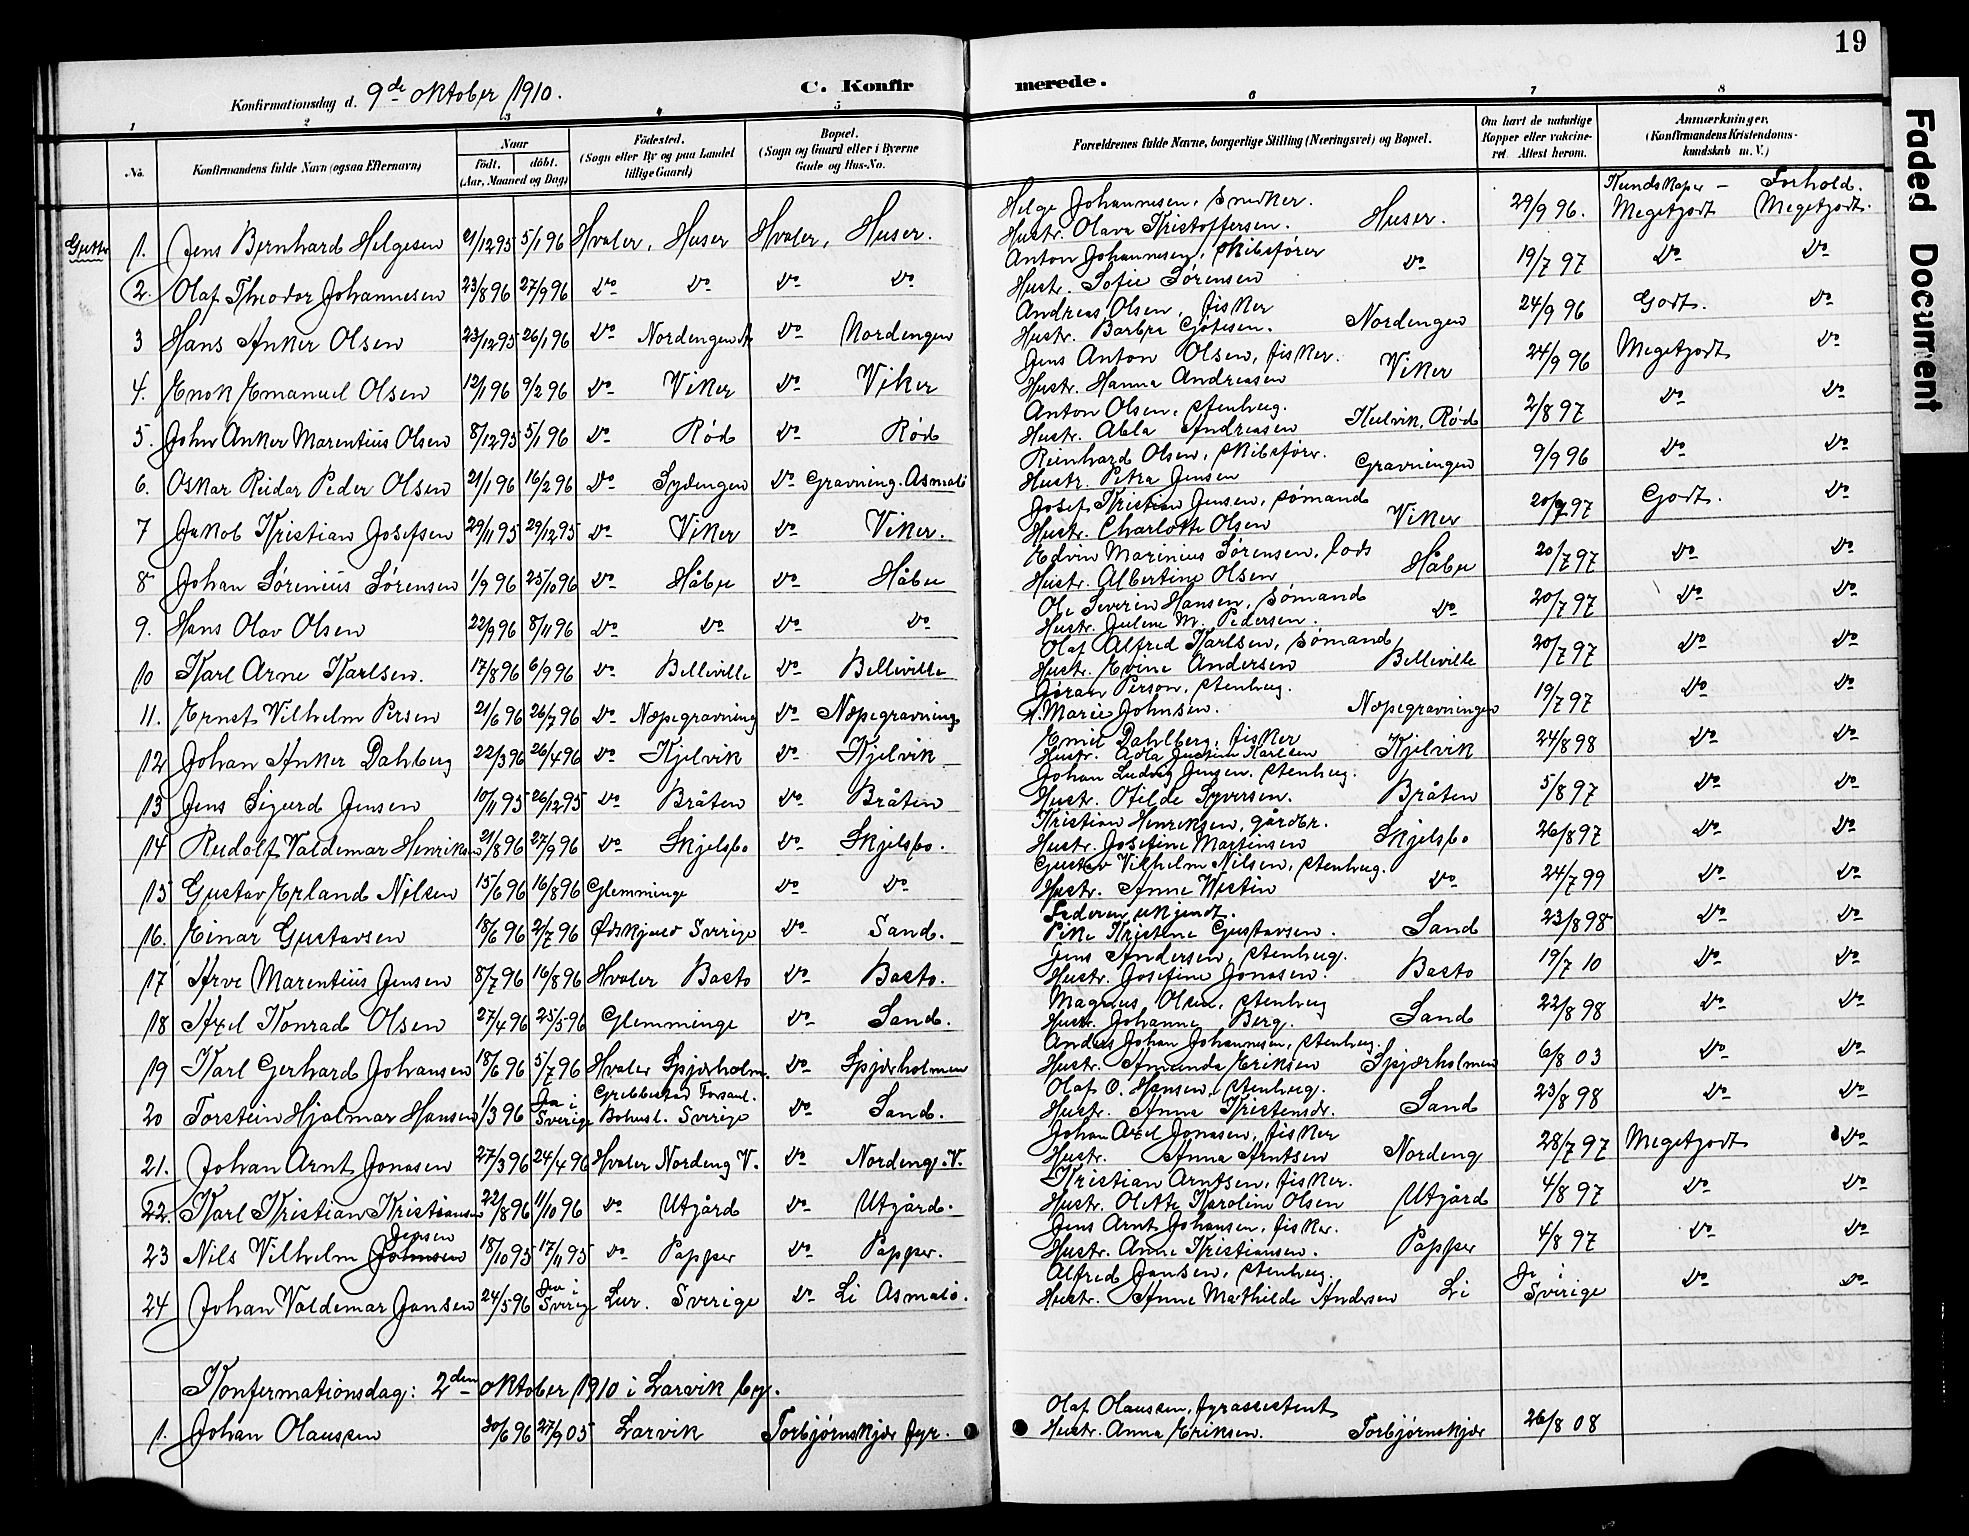 19
Konfirmationsdag d. 9de oktober 1910.
C. Konfirmerede.
1 2 3 4 5 6 7 8
No.
Konfirmandens fulde Navn (ogsaa Efternavn)
Naar
født. døbt.
(Aar, Maaned og Dag)
Fødested.
(Sogn eller By og paa Landet
tillige Gaard)
Bopæl.
(Sogn og Gaard eller i Byerne
Gade og Hus-No.
Forældrenes fulde Navne, borgerlige Stilling (Næringsvei) og Bopæl.
Om havt de naturlige
Kopper eller vakcine-
ret. Attest herom.
Anmærkninger.
(Konfirmandens Kristendoms-
kundskab m. V.)
Kundskaper - Forhold.
Gutter
1. Jens Bernhard Helgesen 21/12 95 5/1 96 Hvaler, Huser Hvaler, Huser. Helge Johannesen, snedker. Hustr. Olava Kristoffersen. Huser. 29/9 96. Megetgodt Megetgodt.
2. Olaf Theodor Johannesen 23/8 96 27/9 96 do do do do Anton Johannesen, skibsfører Hustr. Sofie Sørensen do 19/7 97 do do
3 Hans Anker Olsen 23/12 95 26/1 96 do Nordengen do Nordengen Andreas Olsen, fisker Hustr. Barbra Gøtesen. Nordengen 24/9 96 Godt. do
4. Enok Emanuel Olsen 12/1 96 9/2 96 do Viker do Viker Jens Anton Olsen, fisker. Hustr. Hanna Andreasen Viker 24/9 96 Megetgodt do
5. John Anker Marentius Olsen 8/12 95 5/1 96 do Rød do Rød Anton Olsen, stenhug. Hustr. Abla Andreasen Kulvik, Rød 2/8 97 do do
6. Oskar Reidar Peder Olsen 21/1 96 16/2 96 do Sydengen do Gravning. Asmalø Reinhard Olsen, skibsfører. Hustr. Petra Jensen Gravningen 9/9 96 do do
7 Jakob Kristian Josefsen 29/11 95 29/12 95 do Viker do Viker. Josef Kristian Jensen, sømand Hustr. Charlotte Olsen Viker 20/7 97 Godt. do
8 Johan Sørenius Sørensen 1/9 96 25/10 96 do Håbu do Håbu Edvin Marinius Sørensen, lods Hustr. Albertine Olsen Håbu 20/7 97 do do
9. Hans Olav Olsen 22/9 96 8/11 96 do do do do Ole Severin Hansen, sømand Hustr. Julene M. Pedersen. do 20/7 97 do do
10 Karl Arne Karlsen. 17/8 96 6/9 96 do Belleville do Belleville Olaf Alfred Karlsen, sømand, Hustr. Evine Andersen Belleville 20/7 97 do do
11. Ernst Vilhelm Persen 21/6 96 26/7 96 do Næpegravning do Næpegravning Gøran Person, stenhug. H. Marie Johnsen. Næpegravningen 19/7 97 do do
12 Johan Anker Dahberg 22/3 96 26/4 96 do Kjelvik do Kjelvik Emil Dahlberg, fisker Hustr. Adla Justine Karlsen Kjelvik 24/8 98 do do
13 Jens Sigurd Jensen 10/11 95 26/12 95 do Bråten do Bråten Johan Ludvig Jensen, stenhug. Hustr. Otilde Syversen. Bråten 5/8 97 do do
14 Rudolf Valdemar Henriksen 21/8 96 27/9 96 do Skjelsbo do Skjelsbo. Kristian Henriksen, gårdbr. Hustr. Josefine Martinsen Skjelsbo 26/8 97 do do
15 Gustav Erland Nilsen 15/6 96 16/8 96 Glemminge do do Gustav Vilhelm Nilsen, stenhug. Hustr. Anne Westin do 24/7 99 do do
16. Einar Gustavsen 18/6 96 2/7 96 Sverige do Sand. Faderen ukjendt. Pike Kristine Gustavsen. Sand 23/8 98 do do
17 Arve Marentius Jensen 8/7 96 16/8 96 Hvaler Basto do Basto. Jens Andersen, stenhug. Hustr. Josefine Jonasen. Basto 19/7 10 do do
18 Axel Konrad Olsen 27/4 96 25/5 96 Glemminge do Sand. Magnus Olsen, stenhug Hustr. Johanne Berg. Sand 22/8 98 do do
19 Karl Gerhard Johansen 18/6 96 5/7 96 Hvaler Spjærholm. do Spjærholmen Anders Johan Johannesen, stenhug. Hustr. Amanda Eriksen Spjærholmen 6/8 03 do do
20 Torstein Hjalmar Hansen 1/3 96 Ja i Sverige Grebbestad Forsaml. Bohusl. Sverige do Sand. Olaf O. Hansen, stenhug. Hustr. Anna Kristensdr. Sand 23/8 98 do do
21. Johan Arnt Jonasen 27/3 96 24/4 96 Hvaler Nordeng V. do Nordeng. V. Johan Axel Jonasen, fisker Hustr. Anna Arntsen Nordeng 28/7 97 Megetgodt do
22. Karl Kristian Kristiansen 22/8 96 11/10 96 do Utgård do Utgård. Kristian Arntsen, fisker. Hustr. Olette Karoline Olsen Utgård 4/8 97 do do
23 Nils Vilhelm Johnsen Jensen 18/10 95 17/11 95 do Papper do Papper. Jens Arnt Johansen, fisker. Hustr. Anne Kristiansen. Papper 4/8 97 do do
24 Johan Valdemar Jansen 24/5 96 Ja i Sverige Lur. Sverige do Li Asmalø. Alfred Jansen, stenhug. Hustr. Anne Mathilde Andersen Li Ja i Sverige do do
Konfermationsdag: 2den oktober 1910 i Larvik by.
1. Johan Olaussen 30/6 96 27/9 05 Larvik Torbjørnskjær fyr. Olaf Olaussen, fyrassistent Hustr. Anna Eriksen. Torbjørnskjær 26/8 08
Faded Document